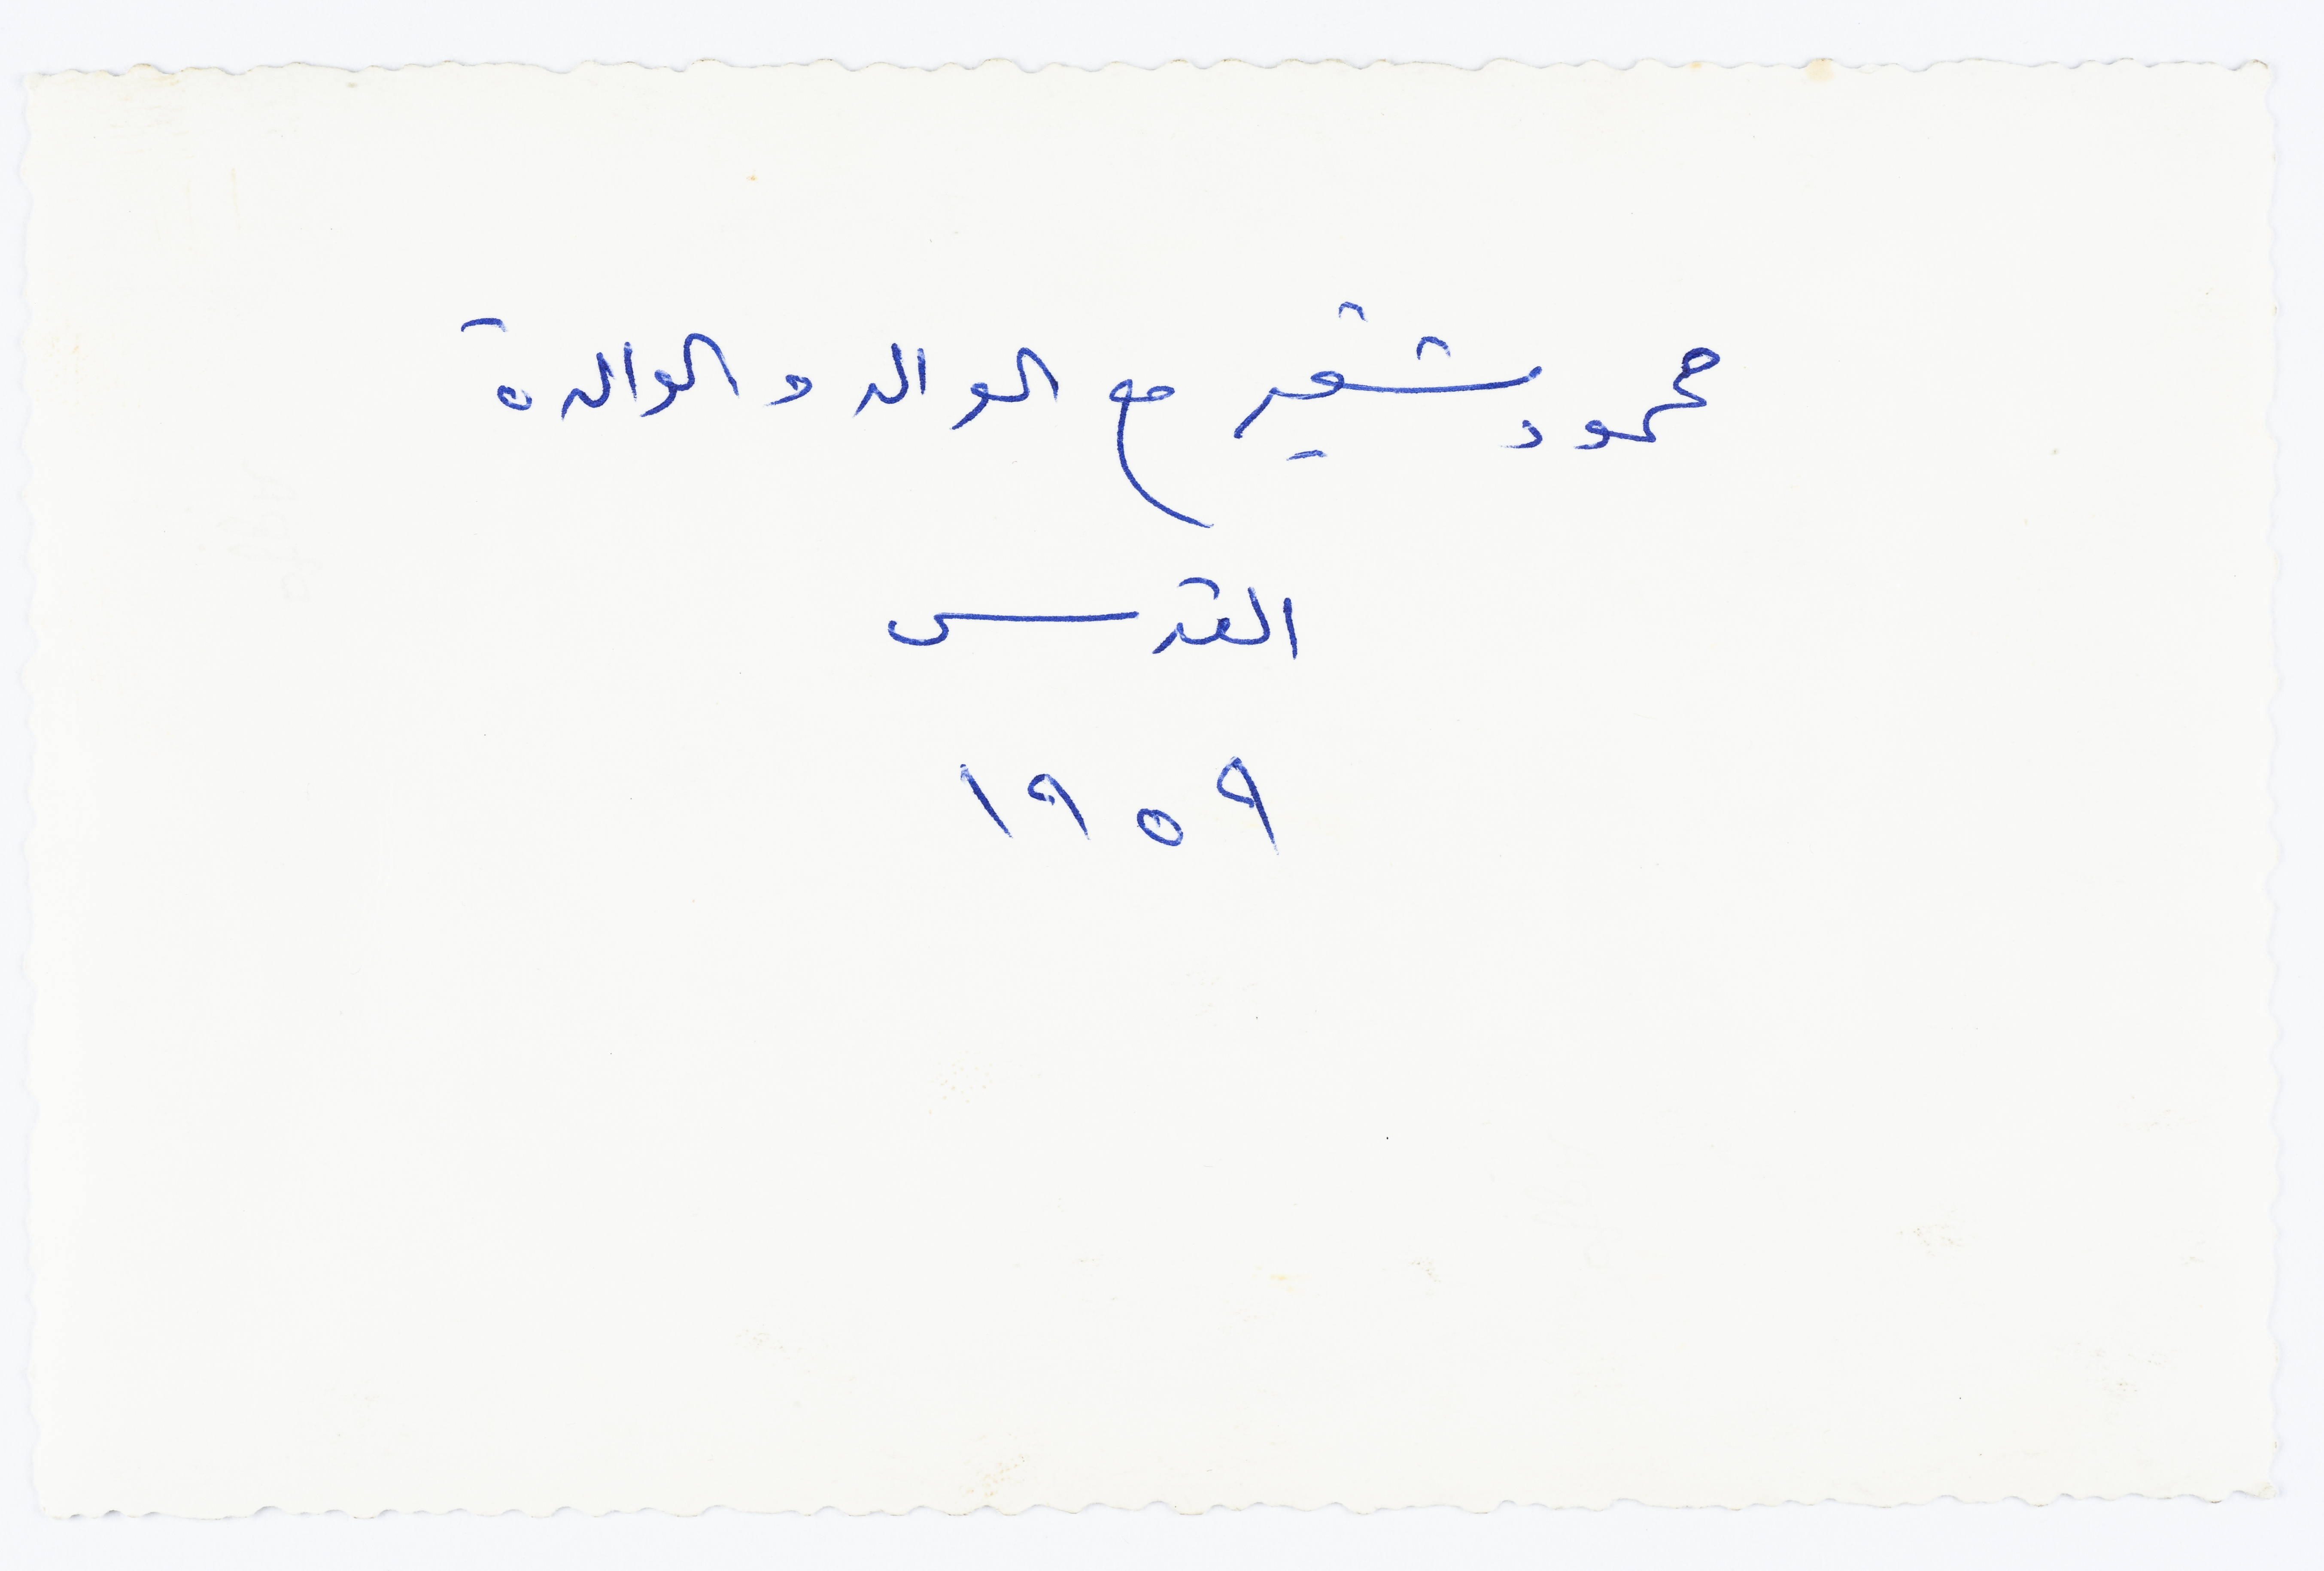 محمود شقير مع الوالد و الوالدة
القدس
١٩٥٩